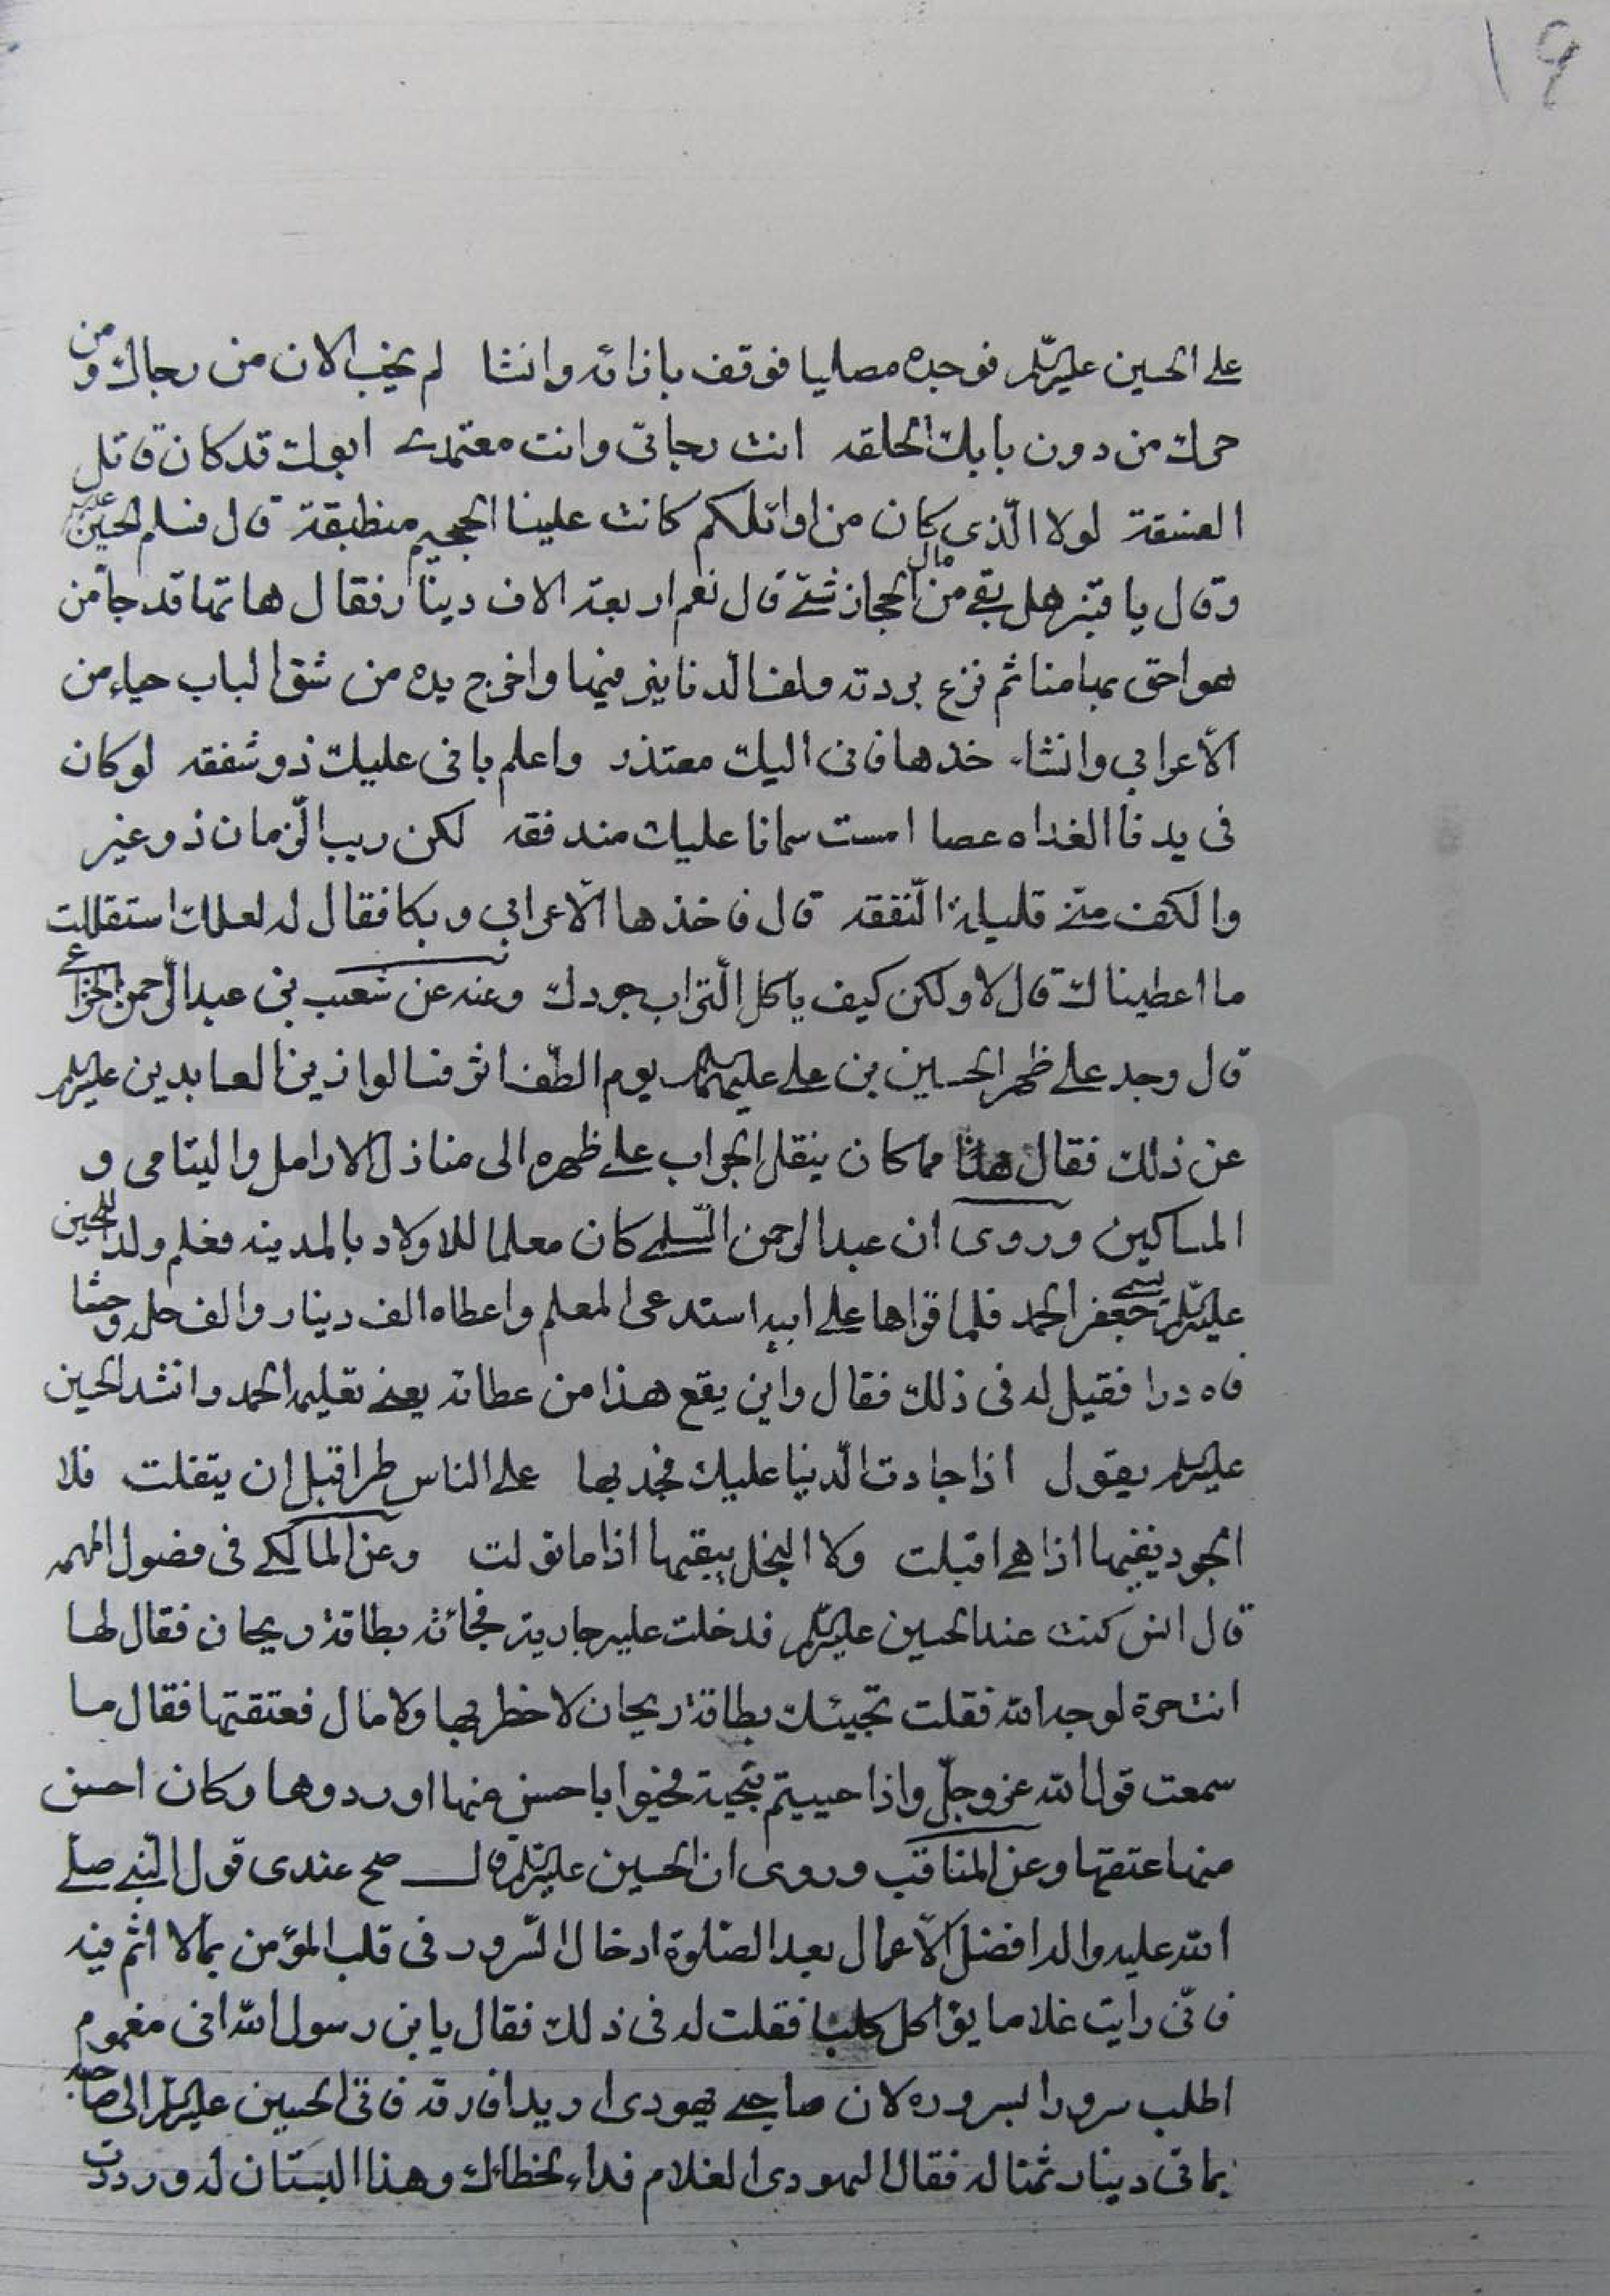 ١٩
على الحسين عليه السلم فوجده مصليا فوقف بازائه وانشا لم يخب الان من رجاك ومن
حرك من دون بابك الحلقه انت رجائى وانت معتمدى ابوك قد كان قاتل
الفسقة لولا الّذى كان من اوائلكم كانت علينا الجحيم منطبقة قال فسلم الحسين
وقال يا قنبر هل بقى من مال الحجاز شئ قال نعم اربعة الاف دينار فقال هاتها قد جا من
هو احق بها منا ثم نزع بردته ولف الدنانير فيها واخرج يده من شق الباب حياء من
الاعرابي وانشاء خذها فانى اليك معتذر واعلم بانى عليك ذو شفقه لو كان
فى يدنا الغداه عصا امست سمانا عليك مندفقه لكن ريب الزمان ذو غير
والكف منى قليلة النفقه قال فاخذها الاعرابي وبكا فقال له لعلك استقللت
ما اعطيناك قال لا ولكن كيف ياكل التراب جودك وعنه عن شعيب بن عبد الرحمن الخزاعى
قال وجد على ظهر الحسين بن على عليهما السلم يوم الطف اثر فسالوا زين العابدين عليه السلم
عن ذلك فقال هذا مما كان ينقل الجراب على ظهره الى منازل الارامل واليتامى و
المساكين وروى ان عبد الرحمن السلمى كان معلما للاولاد بالمدينه فعلم ولد للحسين
عليه السلم يسمى جعفر الحمد فلما قراها على ابيه استدعى المعلم واعطاه الف دينار والف حله وحشا
فاه درا فقيل له فى ذلك فقال واين يقع هذا من عطائه يعنى تعليمه الحمد وانشد الحسين
عليه السلم يقول اذا جادت الدنيا عليك فجد بها على الناس طرا قبل ان يتفلت فلا
الجود يفنيها اذا هى اقبلت ولا البخل يبقيها اذا ما تولت وعن المالكى فى فصول المهمه
قال انس كنت عند الحسين عليه السلم فدخلت عليه جارية فجائته بطاقة ريحان فقال لها
انت حرة لوجه الله فقلت تجيئك بطاقة ريحان لا خطر بها ولا مال فعتقتها فقال ما
سمعت قول الله عز وجل واذا حييتم بتحية فحيوا باحسن منها او ردوها وكان احسن
منها عتقها وعن المناقب وروى ان الحسين عليه السلم قال صح عندى قول النبى صلى
الله عليه واله افضل الاعمال بعد الصلوة ادخال السرور فى قلب المؤمن بما لا اثم فيه
فانى رايت غلاما يؤاكل كلبا فقلت له فى ذلك فقال يابن رسول الله انى مغموم
اطلب سرورا بسروره لان صاحبى يهودى اريد افارقه فاتى الحسين عليه السلم الى صاحبه
بمائى دينار ثمنا له فقال اليهودى الغلام فداء لخطائك وهذا البستان له ورددت